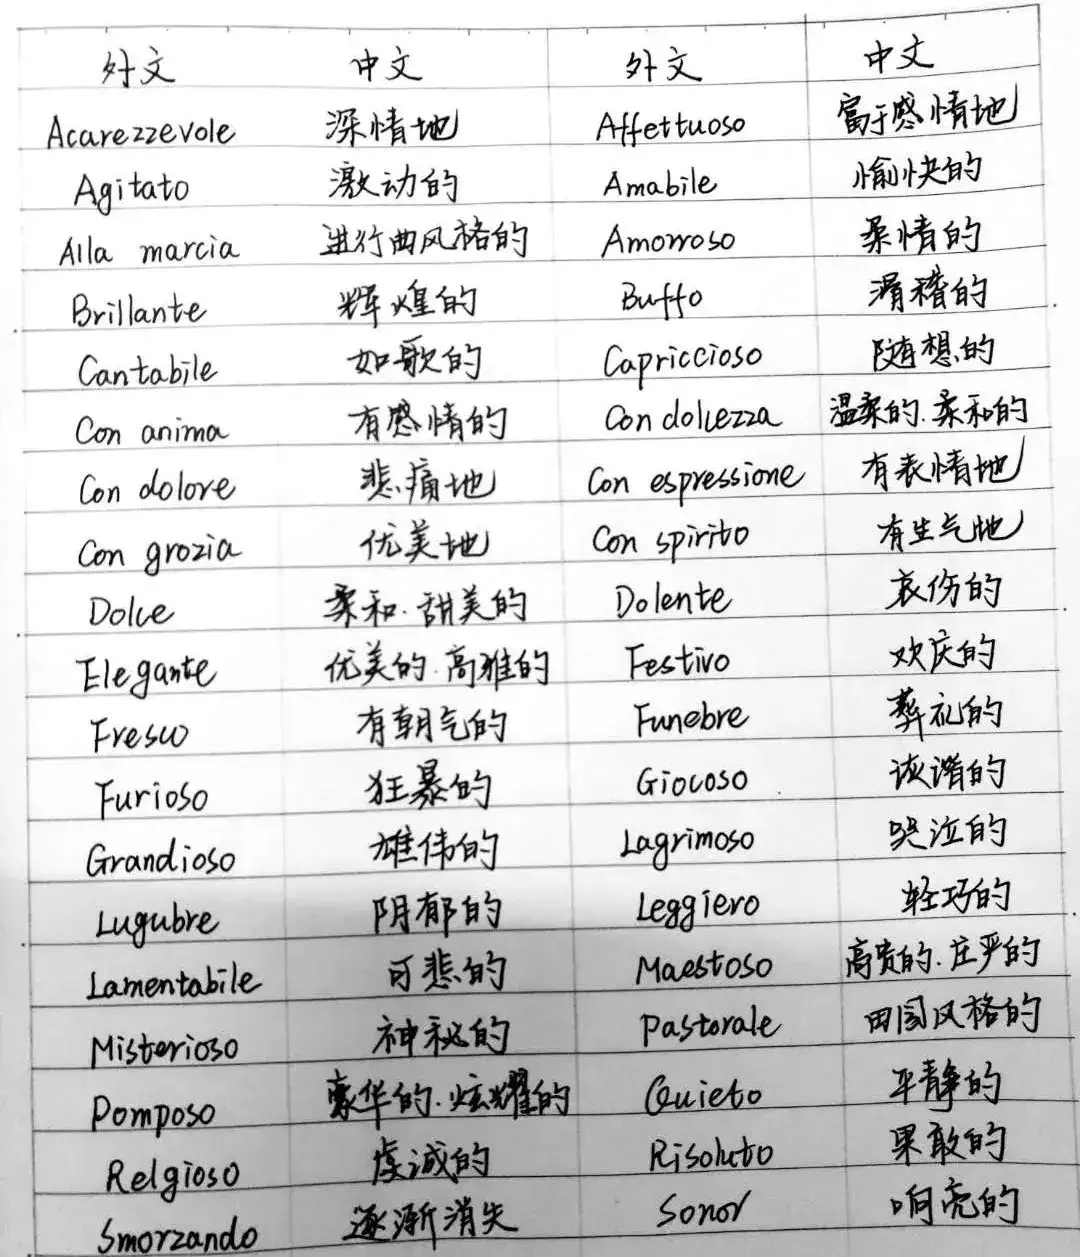 外文 中文 外文 中文
Acarezzevole 深情地 Affettuoso 富于感情地
Agitato 激动的 Amabile 愉快的
Alla marcia 进行曲风格的 Amorroso 柔情的
Brillante 辉煌的 Buffo 滑稽的
Cantabile 如歌的 Capriccioso 随想的
Con anima 有感情的 Con dolcezza 温柔的.柔和的
Con dolore 悲痛地 Con espressione 有表情地
Con grozia 优美地 Con spirito 有生气地
Dolce 柔和.甜美的 Dolente 哀伤的
Elegante 优美的.高雅的 Festivo 欢庆的
Fresco 有朝气的 Funebre 葬礼的
Furioso 狂暴的 Giocoso 诙谐的
Grandioso 雄伟的 Lagrimoso 哭泣的
Lugubre 阴郁的 Leggiero 轻巧的
Lamentabile 可悲的 Maestoso 高贵的.庄严的
Misterioso 神秘的 Pastorale 田园风格的
Pomposo 豪华的.炫耀的 Quieto 平静的
Relgioso 虔诚的 Risoluto 果敢的
Smorzando 逐渐消失 Sonor 响亮的